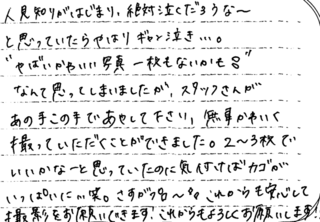 人見知りがはじまり、絶対泣くだろうな〜
と思っていたらやはりギャン泣き…。
"やばいかわいい写真一枚もないかも"
なんて思ってしまいましたが、スタッフさんが
あの手この手であやして下さり、無事かわいく
撮っていただくことができました。2〜3枚で
いいかなーと思っていたのに気が付けばカゴが
いっぱいに…笑。さすがプロ〜。これからも安心して
撮影をお願いできます!これからもよろしくお願いします!